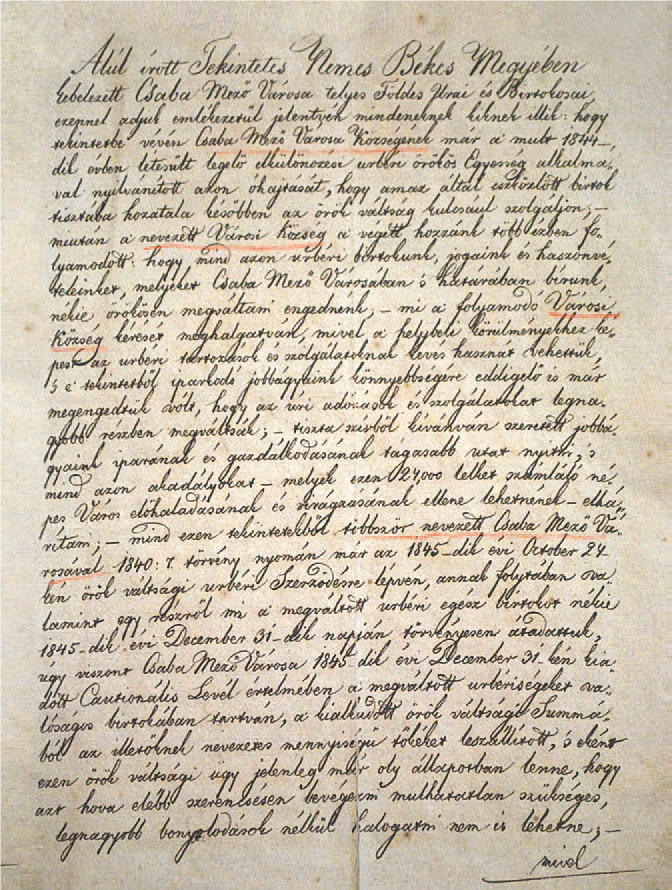 Alúl irott Tekintetes Nemes Békes Megyében
kebelezett Csaba Mező Városa telyes Földes Urai és Birtokosai
ezennel adjuk emlékezetül jelentvén mindeneknek kiknek illik: hogy
tekintetbe vévén Csaba Mező Városa Községének már a' mult 1844-,
dik évben létesült legelő elkülönözési urbéri örökös Egyesség alkalmá-
val nyilvánitott azon óhajtását, hogy amaz által eszközlött birtok
tisztába hozatala későbben az örök váltság kulcsául szolgáljon; –
miután a' nevezett Városi Község a' végett hozzánk több izben fo-
lyamodott: hogy mind azon urbéri birtokunk, jogaink és haszonvé-
teleinket, melyeket Csaba Mező Városában 's határában birunk,
nékie örökösen megváltani engednénk; – mi a' folyamodó Városi
Község kérését meghalgatván, mivel a' helybeli körülményekhez ké-
pest az urbéri tartozások és szolgálatoknak kevés hasznát vehettük,
's e' tekintetből iparkodó jobbágyaink könnyebbségére eddigelő is már
megengedtük vólt, hogy az úri adózások és szolgálatokat legna-
gyobb részben megváltsák; – tiszta szivből kivánván szeretett jobbá-
gyaink iparának és gazdálkodásának tágasabb utat nyitni, 's
mind azon akadályokat – melyek ezen 24,000 lelket számláló né-
pes Város előhaladásának és virágzásának ellene lehetnének – elhá-
ritani; – mind ezen tekintetekből többször nevezett Csaba Mező Vá-
rosával 1840: 7. törvény nyomán már az 1845-dik évi October 24
kén örök váltsági urbéri Szerződésre lépvén, annak folytában va-
lamint egy részről mi a' megváltott urbéri egész birtokot nékie
1845-dik évi December 31-dik napján törvényesen átadattuk,
úgy viszont Csaba Mező Városa 1845-dik évi December 31-kén kia-
dott Cautionális Levél értelmében a' megváltott urbériségeket va-
lóságos birtokában tartván, a' kialkudott örök váltsági Summá-
ból az illetőknek nevezetes mennyiségű tőkéket leszállitott, 's eként
ezen örök váltsági ügy jelenleg már oly állapotban lenne, hogy
azt hova elébb szerencsésen bevégezni mulhatatlan szükséges,
legnagyobb bonyolodások nélkül halogatni nem is lehetne; –
mivel